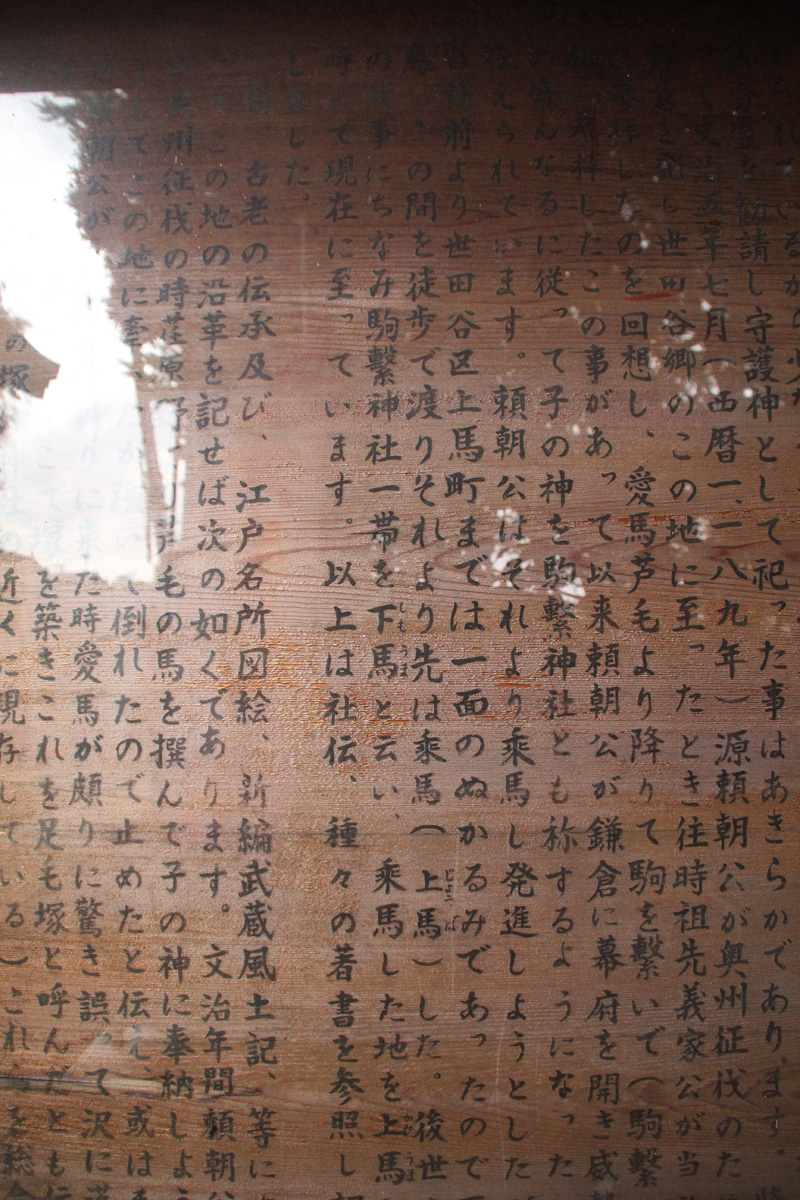 れているから
御分霊を勧請し守護神として祀った事はあきらかであります。
て文治五年七月(西暦一、一八九年)源頼朝公が奥州征伐のた
鎌倉を発し世田谷郷のこの地に至ったとき往時祖先義家公が当
参拝したのを回想し、愛馬芦毛より降りて駒を繋いで(駒繋
参拝したこの事があって以来頼朝公が鎌倉に幕府を開き威
盛んなるに従って子の神を駒繋神社とも称するようになった
伝えられています。頼朝公はそれより乗馬し発進しようとした
社前より世田谷区上馬町までは一面のぬかるみであったので
馬しこの間を徒歩で渡りそれより先は乗馬(上馬)した。後世
の故事にちなみ駒繋神社一帯を下馬と云い、乗馬した地を上馬
呼んで現在に至っています。以上は社伝、種々の著書を参照し
しました。
古老の伝承及び、江戸名所図絵、新編武蔵風土記、等に
この地の沿革を記せば次の如くであります。文治年間頼朝公
奥州征伐の時荏原野より芦毛の馬を撰んで子の神に奉納しよう
してこの地に牽い 倒れたので止めたと伝え、或は
頼朝公が りに来た時愛馬が頗りに驚き誤って沢に
こて塚を築きこれを足毛塚と呼んだとも伝
の塚 神社の近くに現存している)これらを総合